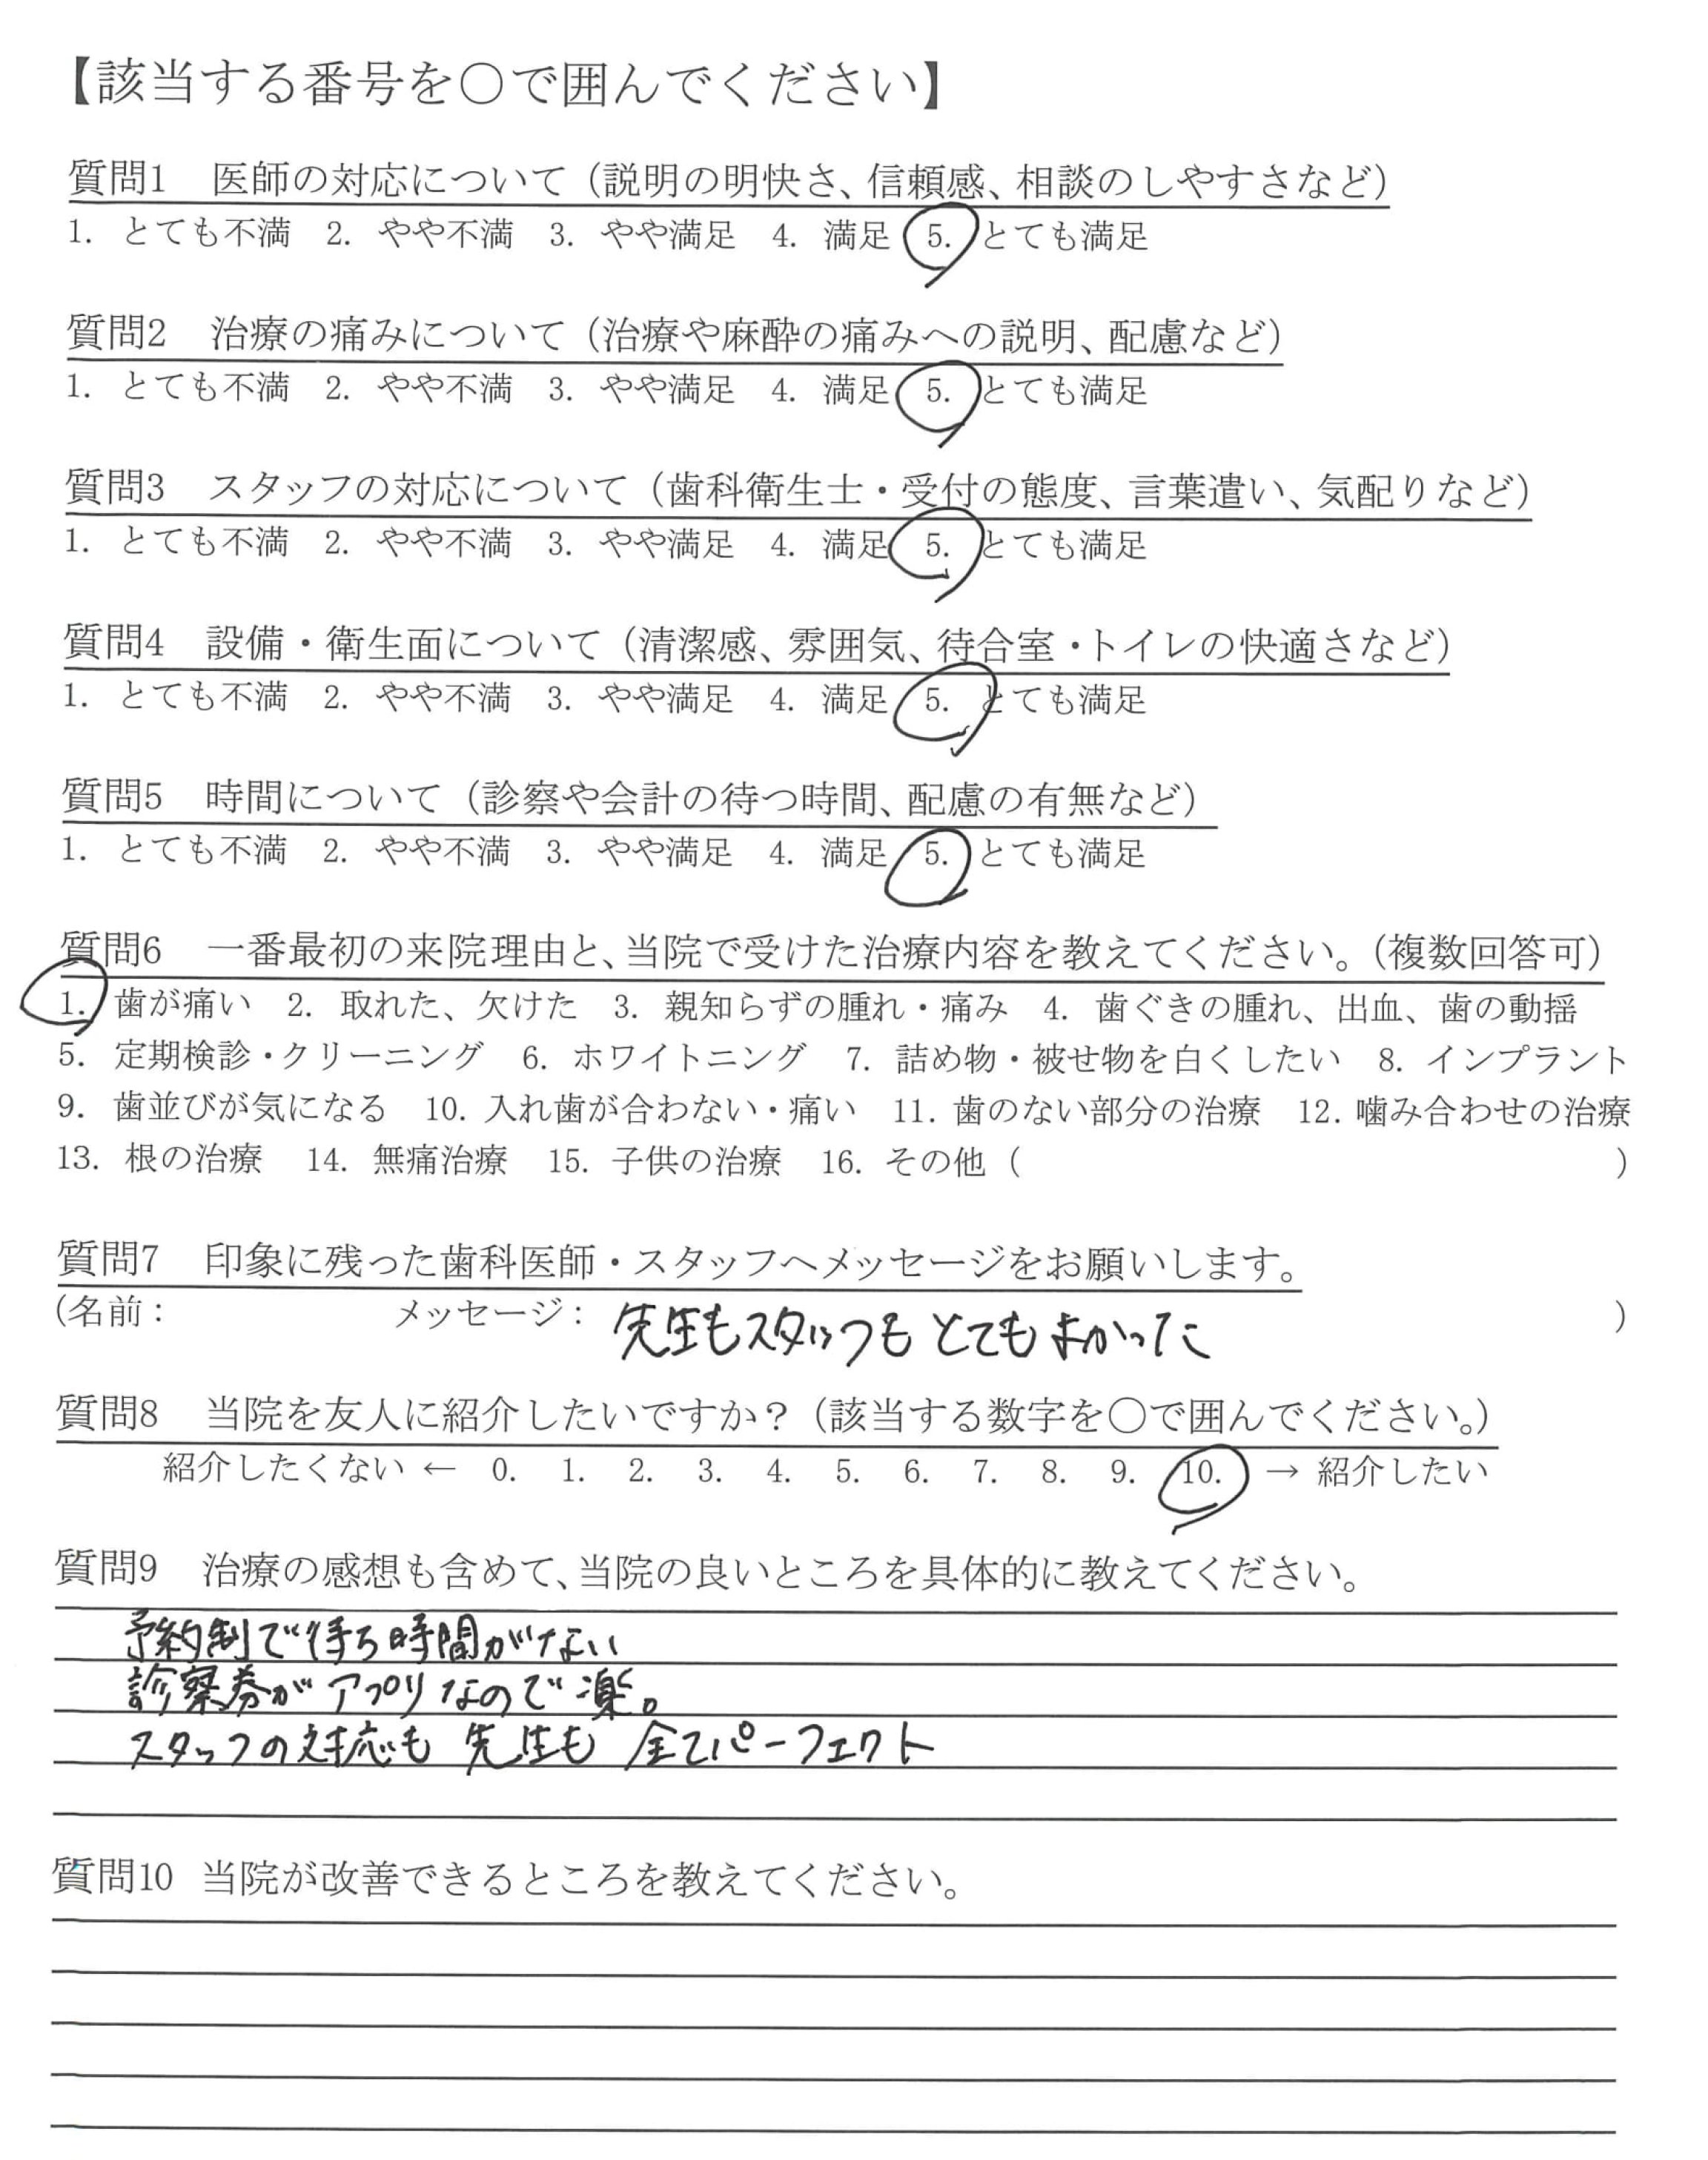 【該当する番号を○で囲んでください】
質問1　医師の対応について（説明の明快さ、信頼感、相談のしやすさなど）
1. とても不満　2. やや不満　3. やや満足　4. 満足　5. とても満足
質問2　治療の痛みについて（治療や麻酔の痛みへの説明、配慮など）
1. とても不満　2. やや不満　3. やや満足　4. 満足　5. とても満足
質問3　スタッフの対応について（歯科衛生士・受付の態度、言葉遣い、気配りなど）
1. とても不満　2. やや不満　3. やや満足　4. 満足　5. とても満足
質問4　設備・衛生面について（清潔感、雰囲気、待合室・トイレの快適さなど）
1. とても不満　2. やや不満　3. やや満足　4. 満足　5. とても満足
質問5　時間について（診察や会計の待つ時間、配慮の有無など）
1. とても不満　2. やや不満　3. やや満足　4. 満足　5. とても満足
質問6　一番最初の来院理由と、当院で受けた治療内容を教えてください。（複数回答可）
1. 歯が痛い　2. 取れた、欠けた　3. 親知らずの腫れ・痛み　4. 歯ぐきの腫れ、出血、歯の動揺
5. 定期検診・クリーニング　6. ホワイトニング　7. 詰め物・被せ物を白くしたい　8. インプラント
9. 歯並びが気になる　10. 入れ歯が合わない・痛い　11. 歯のない部分の治療　12. 噛み合わせの治療
13. 根の治療　14. 無痛治療　15. 子供の治療　16. その他（　　　）
質問7　印象に残った歯科医師・スタッフへメッセージをお願いします。
（名前：　　　メッセージ：先生もスタッフも とてもよかった　）
質問8　当院を友人に紹介したいですか？（該当する数字を○で囲んでください。）
紹介したくない ← 0. 1. 2. 3. 4. 5. 6. 7. 8. 9. 10. → 紹介したい
質問9　治療の感想も含めて、当院の良いところを具体的に教えてください。
予約制で待ち時間がない
診察券がアプリなので楽。
スタッフの対応も 先生も 全てパーフェクト
質問10 当院が改善できるところを教えてください。